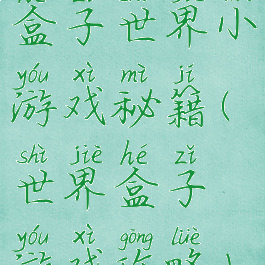 盒子世界小
yóu xì mì jí
游戏秘籍(
shì jiè hé zǐ
世界盒子
yóu xì gōng lüè
游戏攻略)